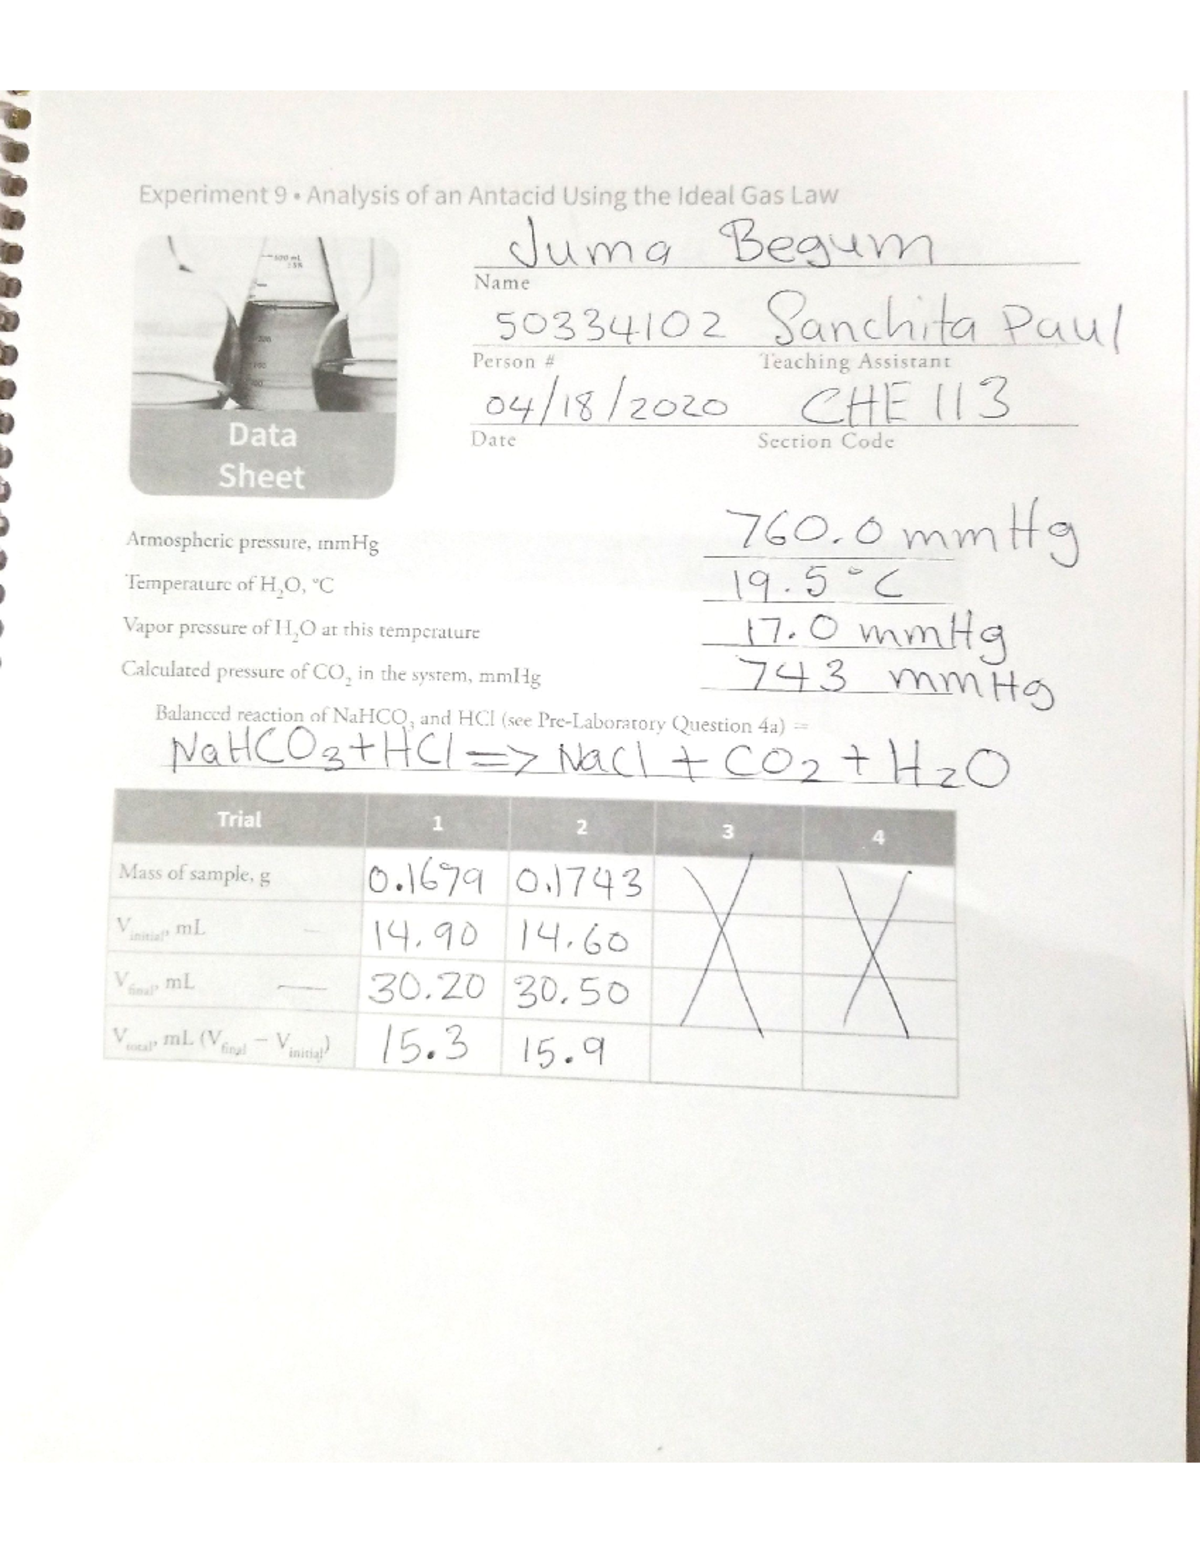 Experiment 9 • Analysis of an Antacid Using the Ideal Gas Law
Juma Begum
Name
50334102 Sanchita Paul
Person # Teaching Assistant
04/18/2020 CHE 113
Date Section Code
Data
Sheet
Atmospheric pressure, mmHg 760.0 mmHg
Temperature of H₂O, °C 19.5°C
Vapor pressure of H₂O at this temperature 17.0 mmHg
Calculated pressure of CO₂ in the system, mmHg 743 mmHg
Balanced reaction of NaHCO₃ and HCl (see Pre-Laboratory Question 4a) =
NaHCO₃+HCl => NaCl + CO₂ + H₂O
Trial 1 2 3 4
Mass of sample, g 0.1679 0.1743
V initial, mL — 14.90 14.60
V final, mL — 30.20 30.50
V total, mL (V final – V initial) 15.3 15.9